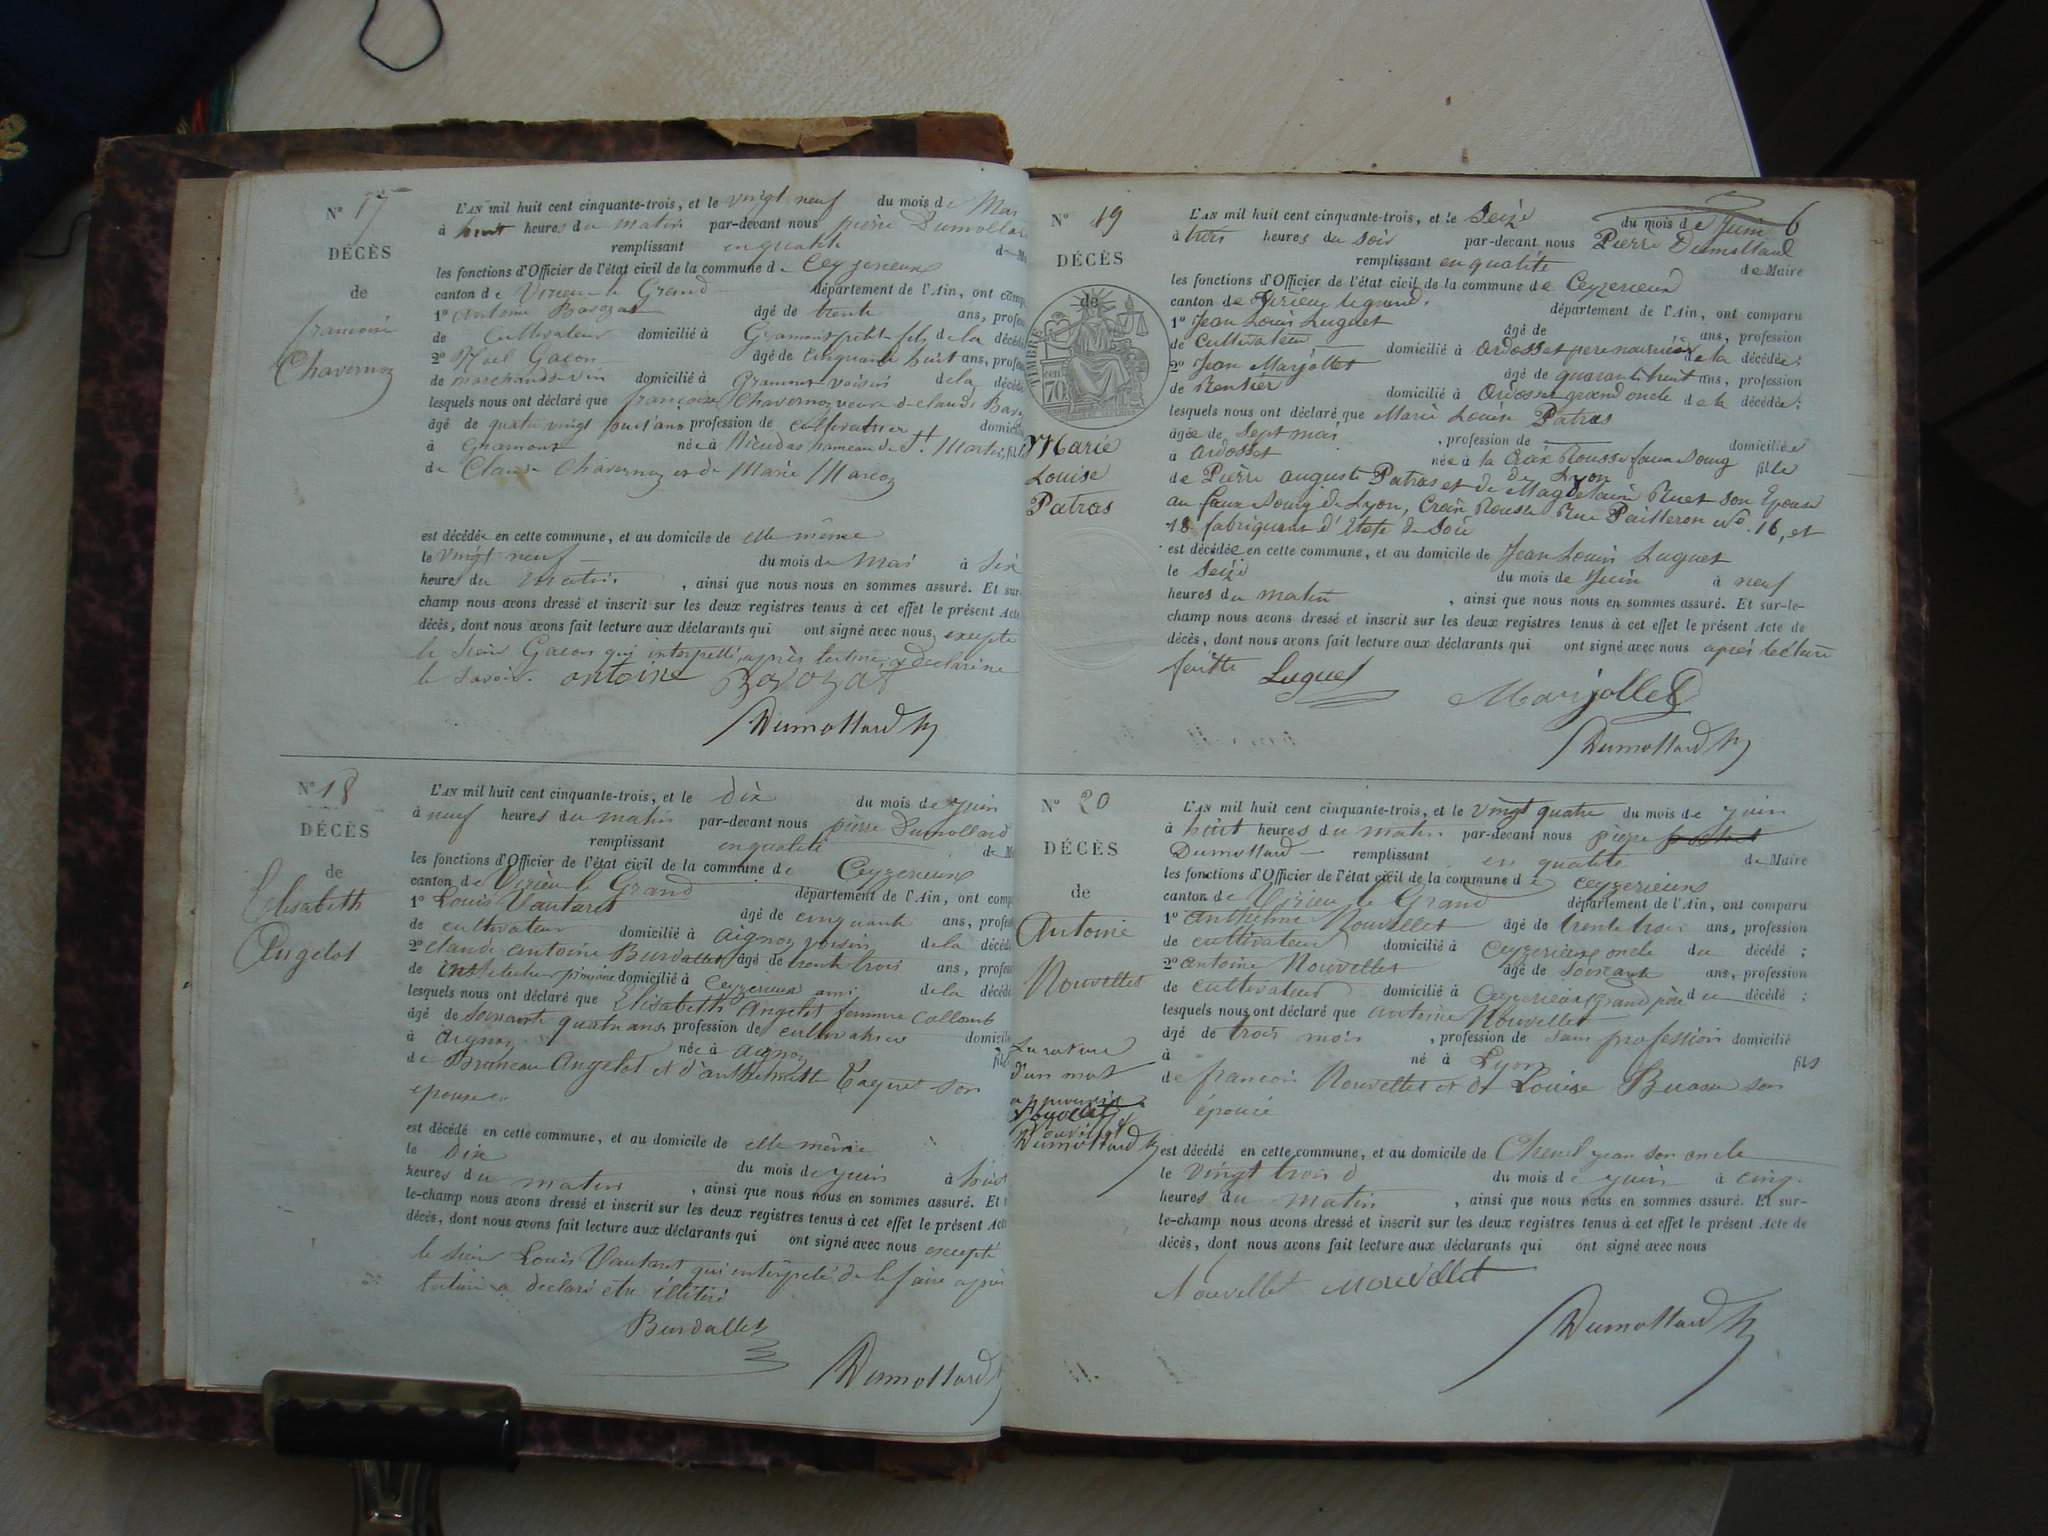 N° 17
DÉCÈS
de
françoise
Chavernoz
L'AN mil huit cent cinquante-trois, et le vingt neuf du mois de Mai
à huit heures du matin par-devant nous pierre Dumollard
remplissant en qualité de
les fonctions d'Officier de l'état civil de la commune de Ceyzerieux
canton de Virieu le Grand département de l'Ain, ont
1° antoine âgé de trente ans,
de cultivateur domicilié à petit fils de la
2° Gacon âgé de cinquante huit ans,
de marchand de vin domicilié à voisin de la
lesquels nous ont déclaré que françoise Chavernoz veuve de claude
âgé de quatre vingt huit ans profession de
à née à hameau de St. Martin,
de Claude Chavernoz et de Marie
est décédée en cette commune, et au domicile de elle même
le vingt neuf du mois de Mai à Six
heures du Matin, ainsi que nous nous en sommes assuré. Et sur-
champ nous avons dressé et inscrit sur les deux registres tenus à cet effet le présent Acte
décès, dont nous avons fait lecture aux déclarants qui ont signé avec nous, excepté
le sieur Gacon qui interpellé, après lecture, a déclaré ne
le savoir. antoine
Dumollard
N° 18
DÉCÈS
de
Elisabeth
Angelot
L'AN mil huit cent cinquante-trois, et le dix du mois de juin
à neuf heures du matin par-devant nous pierre Dumollard
remplissant en qualité de
les fonctions d'Officier de l'état civil de la commune de Ceyzerieux
canton de Virieu le Grand département de l'Ain, ont
1° Louis Vautaret âgé de cinquante ans,
de cultivateur domicilié à aignoz voisin de la
2° claude antoine Burdallet âgé de trente trois ans,
de instituteur primaire domicilié à Ceyzerieux ami de la
lesquels nous ont déclaré que Elisabeth Angelot femme Collomb
âgé de soixante quatre ans, profession de
à aignoz née à aignoz
de Angelot et d'anthelmette son
épouse
est décédé en cette commune, et au domicile de elle même
le dix du mois de juin à huit
heures du matin, ainsi que nous nous en sommes assuré. Et
le-champ nous avons dressé et inscrit sur les deux registres tenus à cet effet le présent Acte
décès, dont nous avons fait lecture aux déclarants qui ont signé avec nous excepté
le sieur Louis Vautaret qui interpelé de le faire après
lecture a déclaré être illitéré
Burdallet
Dumollard
6
N° 19
DÉCÈS
de
TIMBRE
70 cen
Marie
Louise
Patras
L'AN mil huit cent cinquante-trois, et le Seize du mois de Juin
à trois heures du soir par-devant nous Pierre Dumollard
remplissant en qualité de Maire
les fonctions d'Officier de l'état civil de la commune de Ceyzerieux
canton de Virieu le grand, département de l'Ain, ont comparu
1° Jean Louis Luguet âgé de ans, profession
de cultivateur domicilié à ardosset pere nourricier de la décédée;
2° Jean Marjollet âgé de quarante huit ans, profession
de Rentier domicilié à Ardosset grand oncle de la décédée;
lesquels nous ont déclaré que Marie Louise Patras
âgée de Sept mois, profession de domiciliée
à Ardosset née à la Croix Rousse faux bourg de Lyon fille
de Pierre auguste Patras et de Magdelaine Ruet son Epouse
au faux bourg de Lyon, Croix Rousse Rue Pailleron N° 16, et
18 fabriquant d'étofe de Soie
est décédée en cette commune, et au domicile de Jean Louis Luguet
le Seize du mois de Juin à neuf
heures du matin, ainsi que nous nous en sommes assuré. Et sur-le-
champ nous avons dressé et inscrit sur les deux registres tenus à cet effet le présent Acte de
décès, dont nous avons fait lecture aux déclarants qui ont signé avec nous après lecture
faitte Luguet Marjollet
Dumollard
N° 20
DÉCÈS
de
Antoine
Nouvellet
La rature
d'un mot
approuvée
Nouvellet
Dumollard
L'AN mil huit cent cinquante-trois, et le vingt quatre du mois de juin
à huit heures du matin par-devant nous pierre
Dumollard remplissant en qualité de Maire
les fonctions d'Officier de l'état civil de la commune de Ceyzerieux
canton de Virieu le Grand département de l'Ain, ont comparu
1° anthelme Nouvellet âgé de trente trois ans, profession
de cultivateur domicilié à Ceyzerieux oncle du décédé;
2° antoine Nouvellet âgé de soixante ans, profession
de cultivateur domicilié à Ceyzerieux grand père du décédé;
lesquels nous ont déclaré que antoine Nouvellet
âgé de trois mois, profession de sans profession domicilié
à né à Lyon fils
de françois Nouvellet et de Louise son
épouse
est décédé en cette commune, et au domicile de jean son oncle
le vingt trois du mois de juin à cinq
heures du matin, ainsi que nous nous en sommes assuré. Et sur-
le-champ nous avons dressé et inscrit sur les deux registres tenus à cet effet le présent Acte de
décès, dont nous avons fait lecture aux déclarants qui ont signé avec nous
Nouvellet Nouvellet
Dumollard